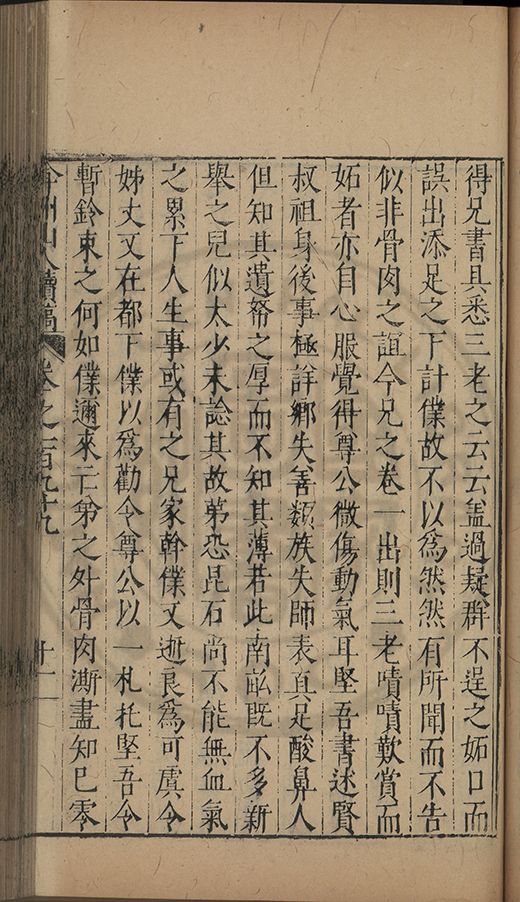 得兄書具悉三老之云云盖過疑群不逞之妬口而
誤出添足之下計僕故不以爲然然有所聞而不告
似非骨肉之誼今兄之卷一出則三老嘖嘖歎賞而
妬者亦自心服覺得尊公微傷動氣耳堅吾書述賢
叔祖身後事極詳鄉失善類族失師表真足酸鼻人
但知其遺帑之厚而不知其薄若此南畝既不多新
舉之兒似太少未諗其故第恐昆石尚不能無血氣
之累下人生事或有之兄家幹僕文逝良爲可虞令
姊丈又在都下僕以爲勸令尊公以一札托堅吾令
暫鈴束之何如僕邇來亡弟之外骨肉漸盡知已零
弇州山人續稿 卷之一百九十九 十二